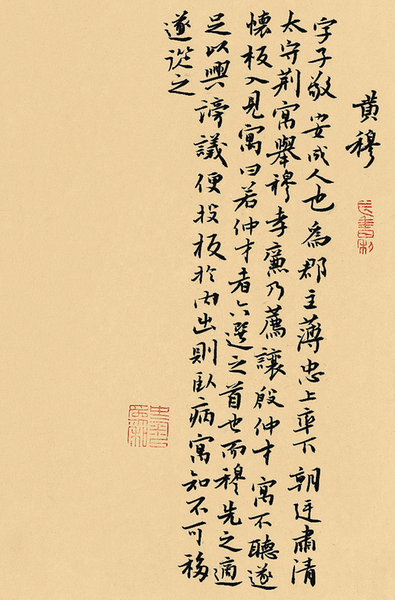 黄穆
字子敬安成人也為郡主薄忠上率下朝廷肅清
太守荆寓舉穆孝廉乃薦讓殷仲才寓不聽遂
懷板入見寓曰若仲才者六選之首也而穆先之適
足以興謗議便投板於内出則臥病寓知不可移
遂從之